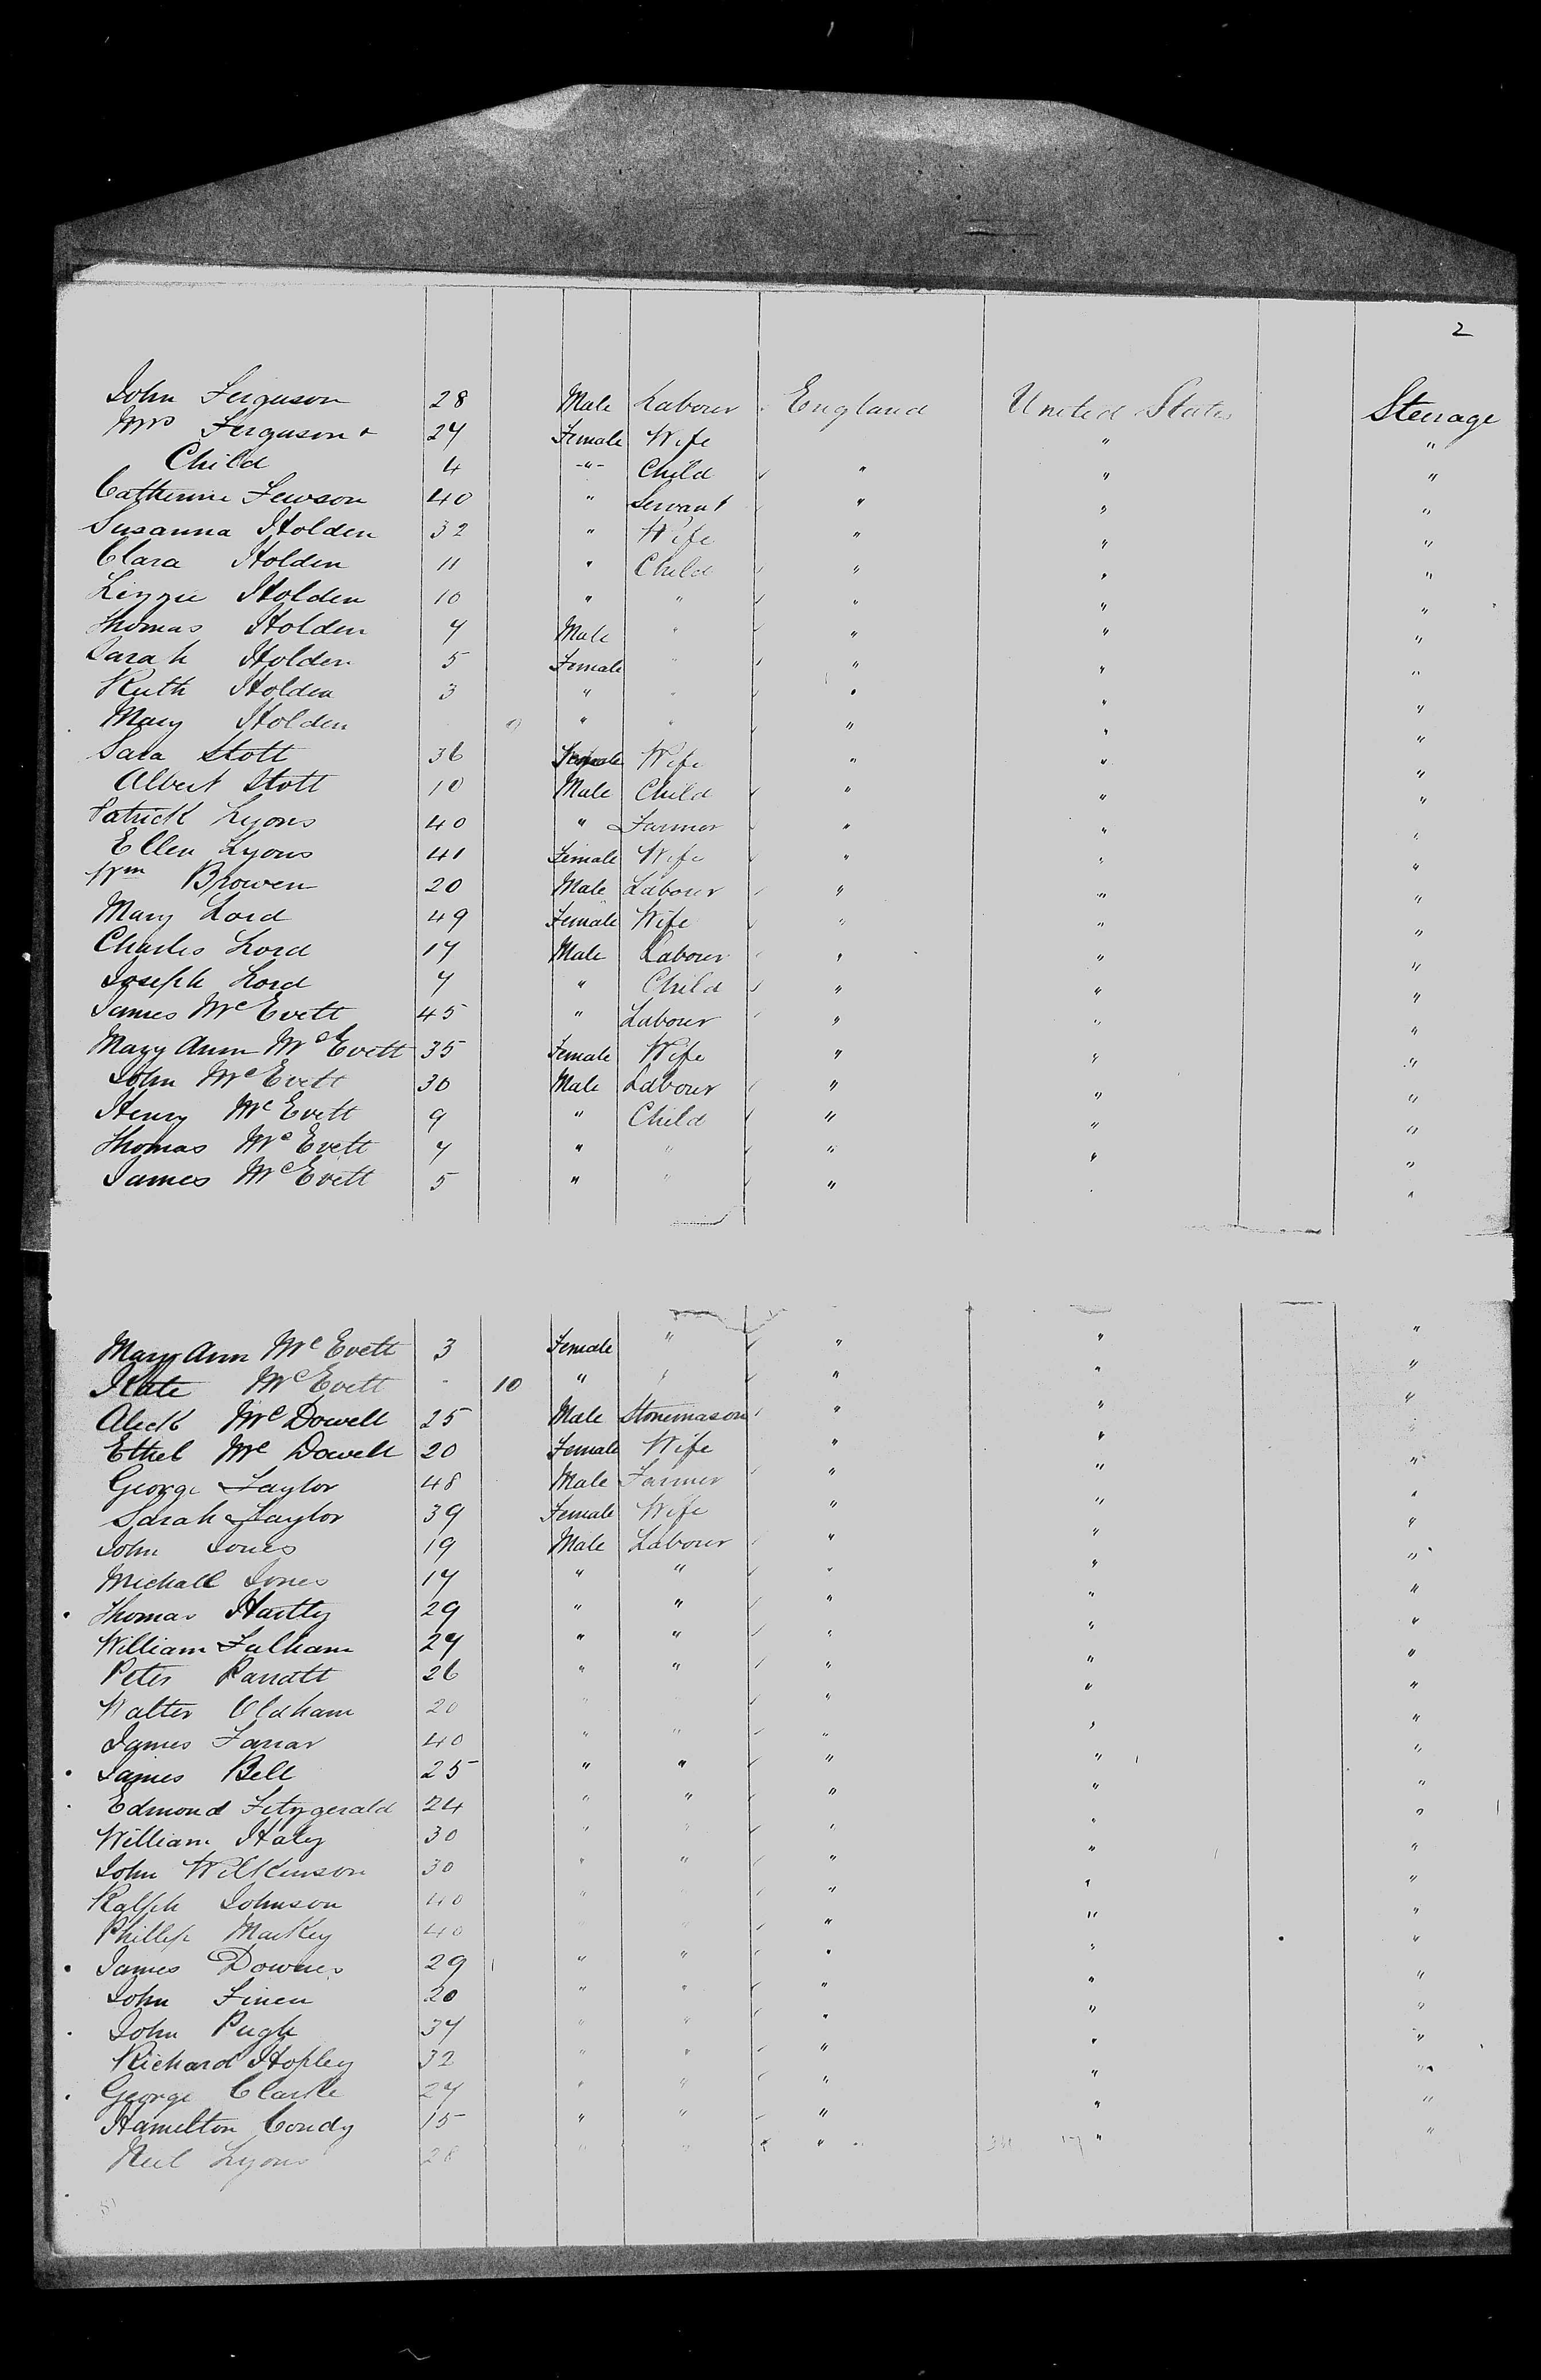 2
John Ferguson 28 Male Labour England United States Steerage
Mrs Ferguson + 27 Female Wife " "
Child 4 -"- Child " " "
Catherine Fewson 40 " Servant " " "
Susanna Holden 32 " Wife " " "
Clara Holden 11 " Child " " "
Lizzie Holden 10 " " " " "
Thomas Holden 7 Male " " " "
Sarah Holden 5 Female " " " "
Ruth Holden 3 " " " " "
Mary Holden 9 " " " " "
Sara Stott 36 Female Wife " " "
Albert Stott 10 Male Child " " "
Patrick Lyons 40 " Farmer " " "
Ellen Lyons 41 Female Wife " " "
Wm Browen 20 Male Labour " " "
Mary Lord 49 Female Wife " " "
Charles Lord 17 Male Labour " " "
Joseph Lord 7 " Child " " "
James McEvett 45 " Labour " " "
Mary Ann McEvett 35 Female Wife " " "
John McEvett 30 Male Labour " " "
Henry McEvett 9 " Child " " "
Thomas McEvett 7 " " " " "
James McEvett 5 " " " " "
Mary Ann McEvett 3 Female " " " "
Kate McEvett - 10 " " " " "
Aleck McDowell 25 Male Stonemason " " "
Ethel McDowell 20 Female Wife " " "
George Taylor 48 Male Farmer " " "
Sarah Taylor 39 Female Wife " " "
John Jones 19 Male Labour " " "
Michall Jones 17 " " " " "
Thomas Hartly 29 " " " " "
William Fulham 27 " " " " "
Peter Parratt 26 " " " " "
Walter Oldham 20 " " " "
James Farrar 40 " " " " "
James Bell 25 " " " " "
Edmond Fitzgerald 24 " " " " "
William Haley 30 " " " " "
John Wilkinson 30 " " " " "
Ralph Johnson 40 " " " "
Phillip Markey 40 " " "
James Downes 29 " " " " "
John Finen 20 " " " " "
John Pugh 37 " " " " "
Richard Hopley 32 " " " " "
George Clarke 27 " " " " "
Hamelton Condy 15 " " " " "
Neil Lyons 28 " " " " "